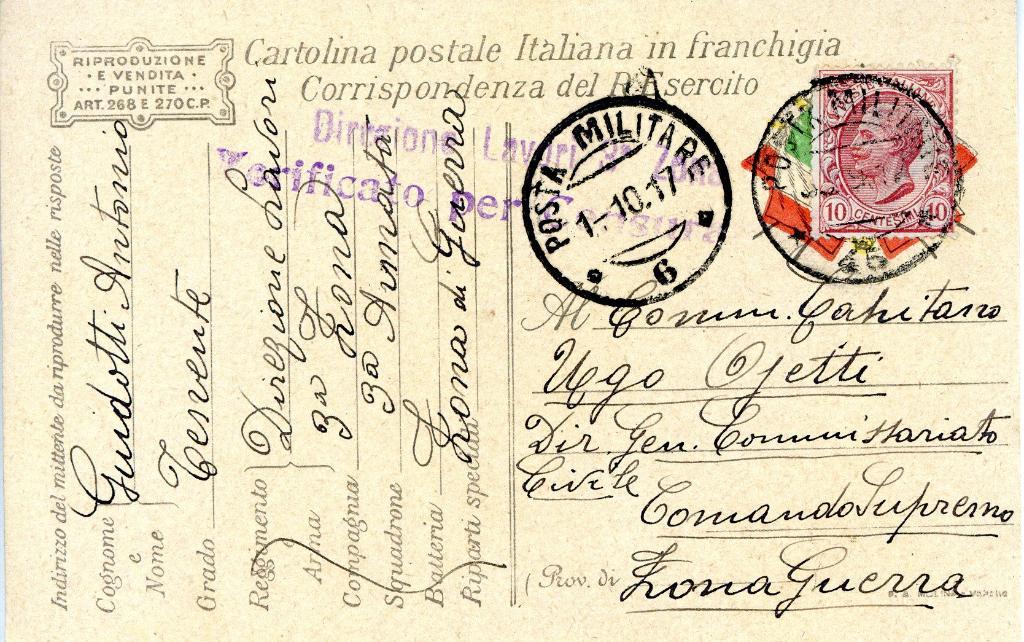 RIPRODUZIONE
E VENDITA
PUNITE
ART. 268 E 270 C.P.
Cartolina postale Italiana in franchigia
Corrispondenza del R. Esercito
Direzione Lavori 3a Zona
Verificato per Censura
POSTA MILITARE
1.10.17
6
POSTA MILITARE
45
10 CENTESIMI 10
Indirizzo del mittente da riprodurre nelle risposte
Cognome Guidotti Antonio
e
Nome
Grado Tenente
Reggimento Direzione Lavori
Arma 3a Zona
Compagnia 3a Armata
Squadrone
Batteria
Riparti speciali Zona di Guerra
Al Comm. Capitano
Ugo Ojetti
Dir. Gen. Commissariato
Civile
Comando Supremo
(Prov. di Zona Guerra